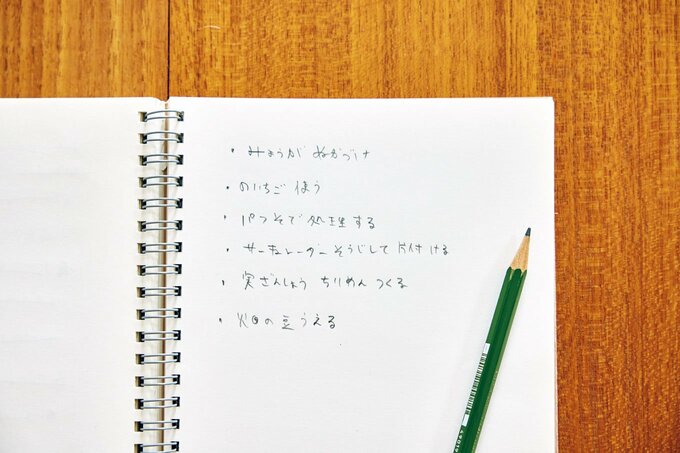 ・みょうが ぬかづけ
・のいちご 使う
・パつそで処理する
・サーキュレーター そうじして 片付ける
・実ざんしょう ちりめん つくる
・の豆うえる